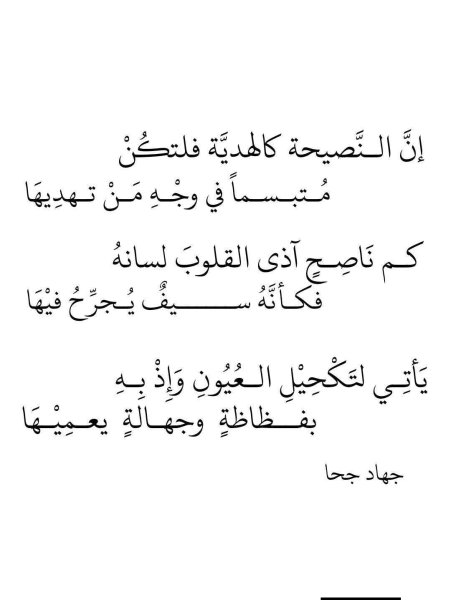 إنَّ النَّصيحة كالهديَّة فلتكُنْ
مُتبسماً في وجْهِ مَنْ تهدِيهَا
كم نَاصِحٍ آذى القلوبَ لسانهُ
فكأنَّهُ سيفٌ يُجرِّحُ فيْهَا
يَأتِي لتَكْحِيْلِ العُيُونِ وَإِذْ بِهِ
بفظاظةٍ وجهالةٍ يعمِيْهَا
جهاد جحا